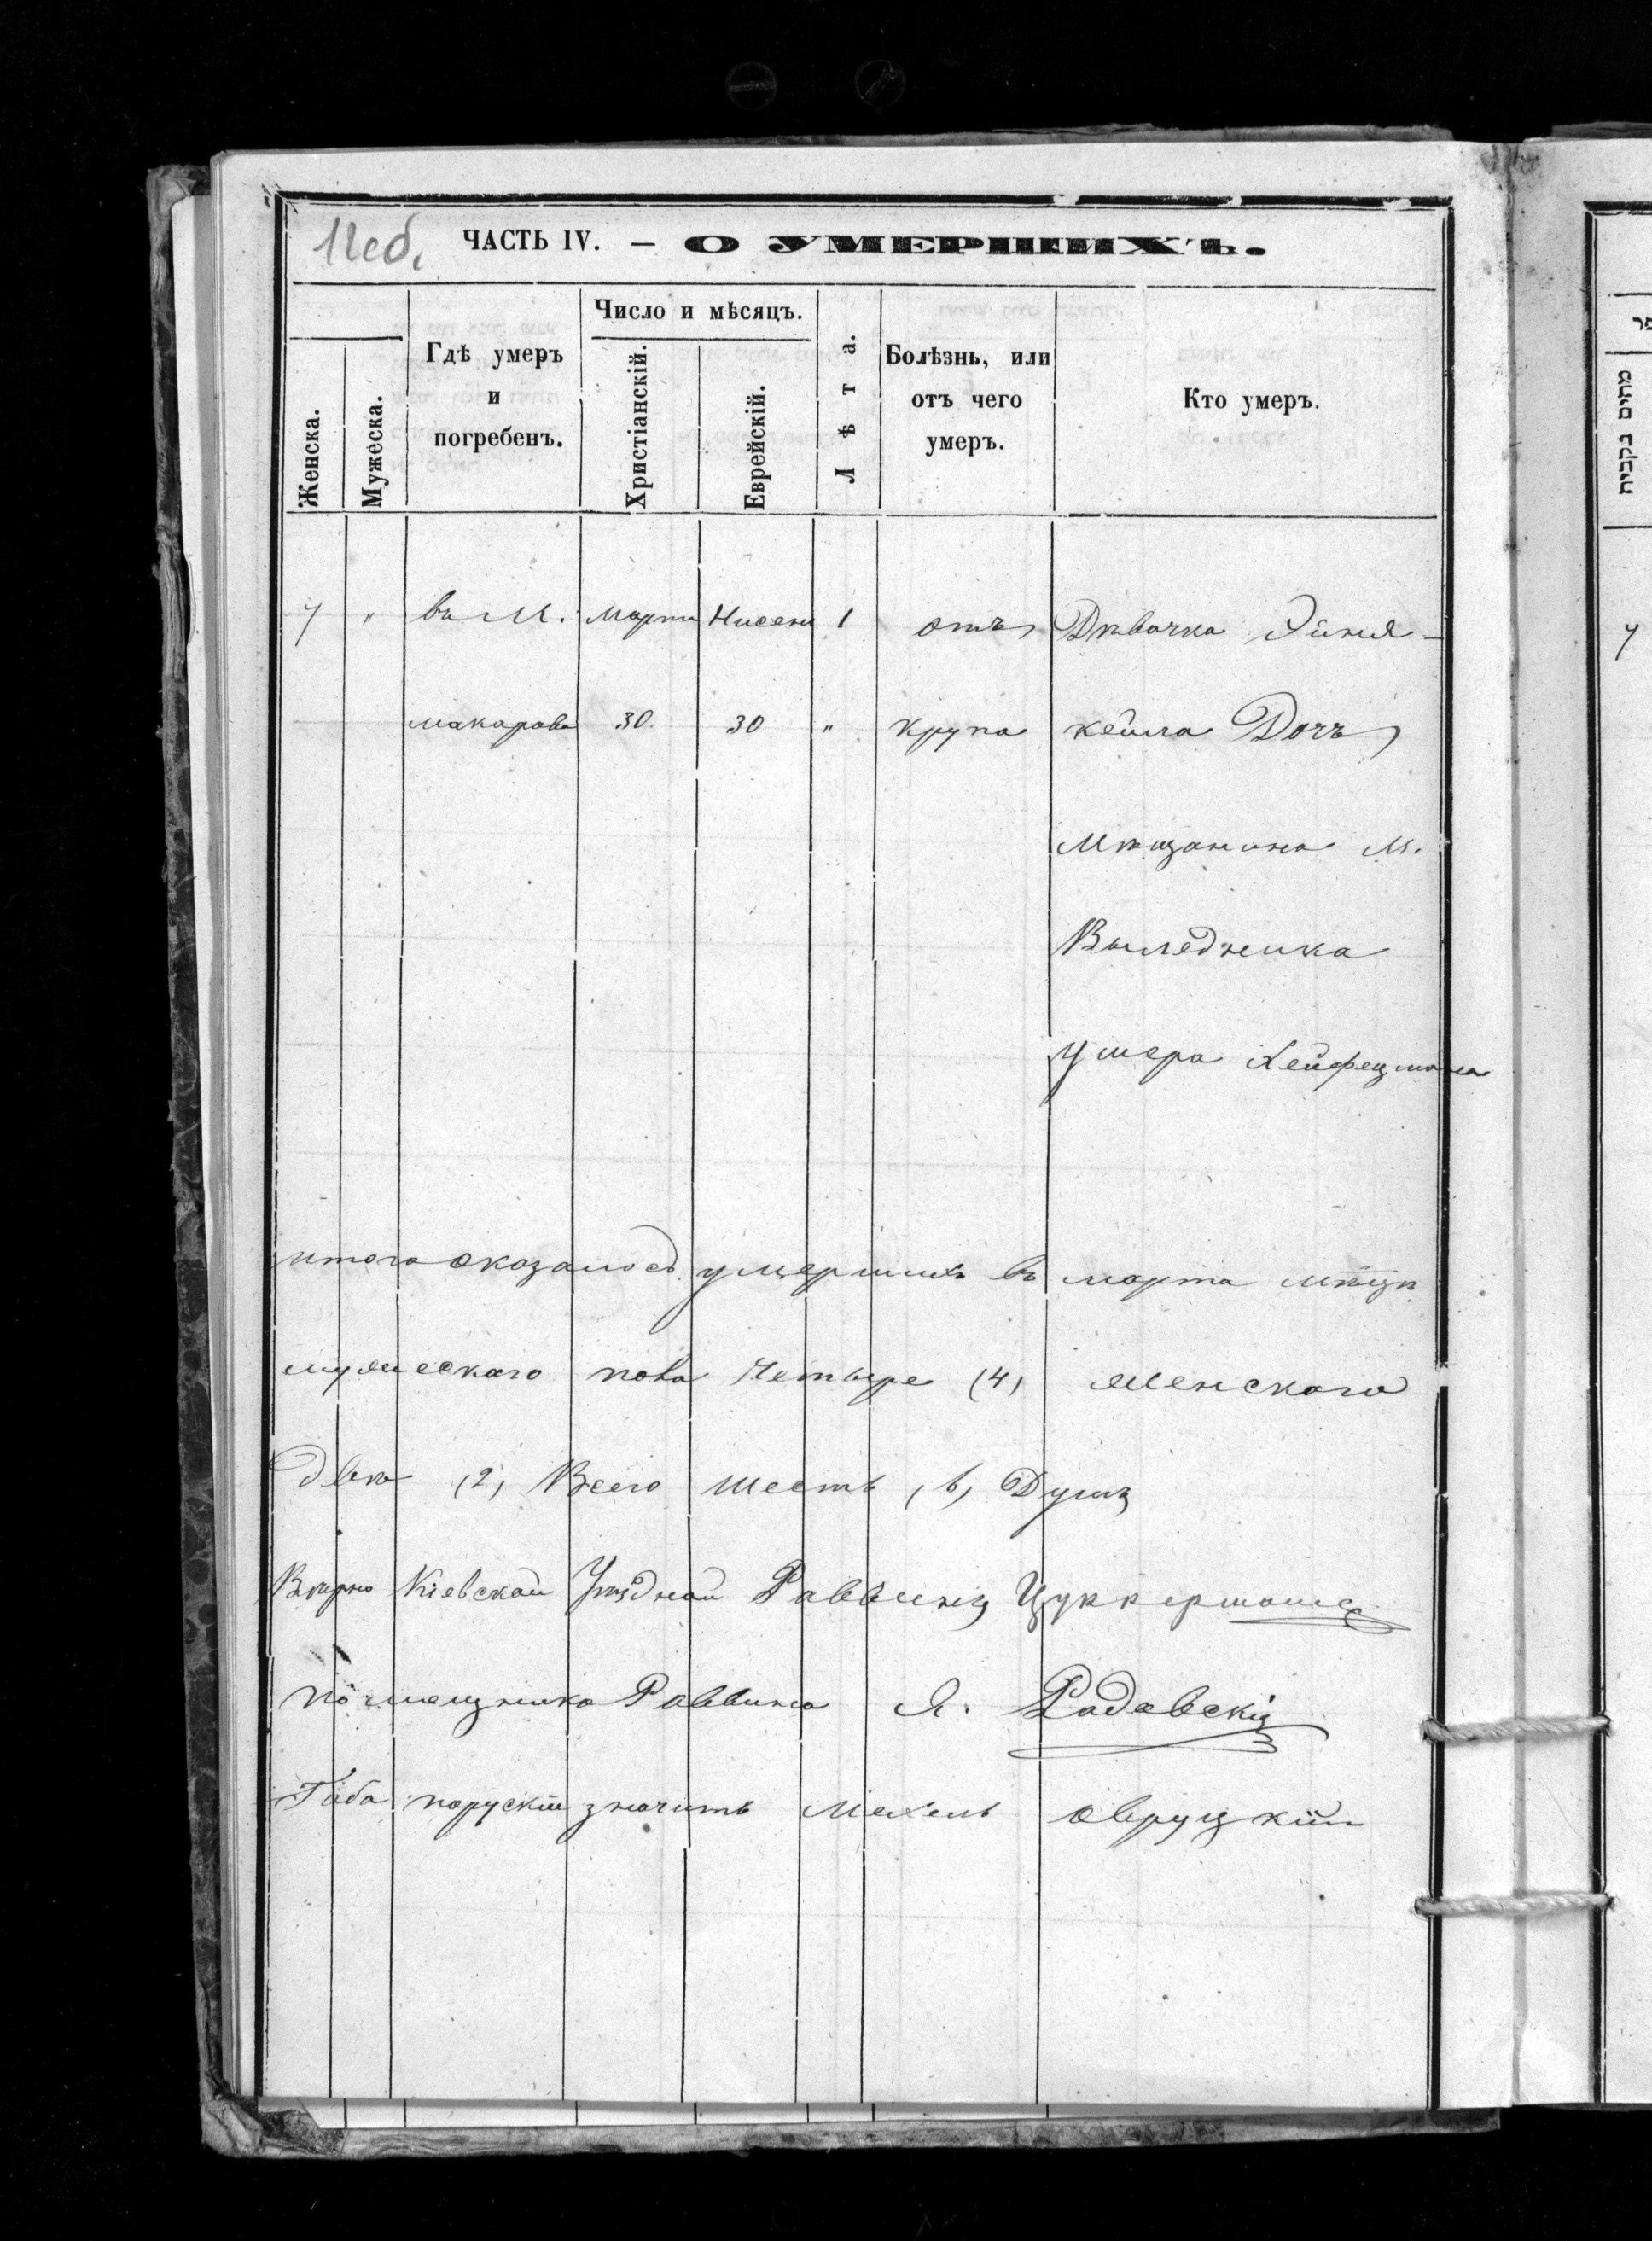 11об.
ЧАСТЬ IV. — О УМЕРШИХЪ.
Женска.
Мужеска.
Гдѣ умеръ и погребенъ.
Число и мѣсяцъ.
Христіанскій.
Еврейскій.
Лѣта.
Болѣзнь, или отъ чего умеръ.
Кто умеръ.
מתים נקבות
7 " въ М. Марта Нисена 1 отъ Дѣвочка Эйния-
макарова 30. 30 " крупа кейла Дочъ
Мѣщанина М.
Выледника
Ушера Хейфецмана
итого оказалось умершихъ въ марта мѣсцѣ
мужескаго пола Четыре (4) женскаго
двѣ (2) Всего шесть (6) Душъ
Вѣрно Кіевской Уѣздной Раввинъ Цуккерманъ
помощника Раввина Я. Радовскій
Габа поруский значитъ Мехель овруцкій
7